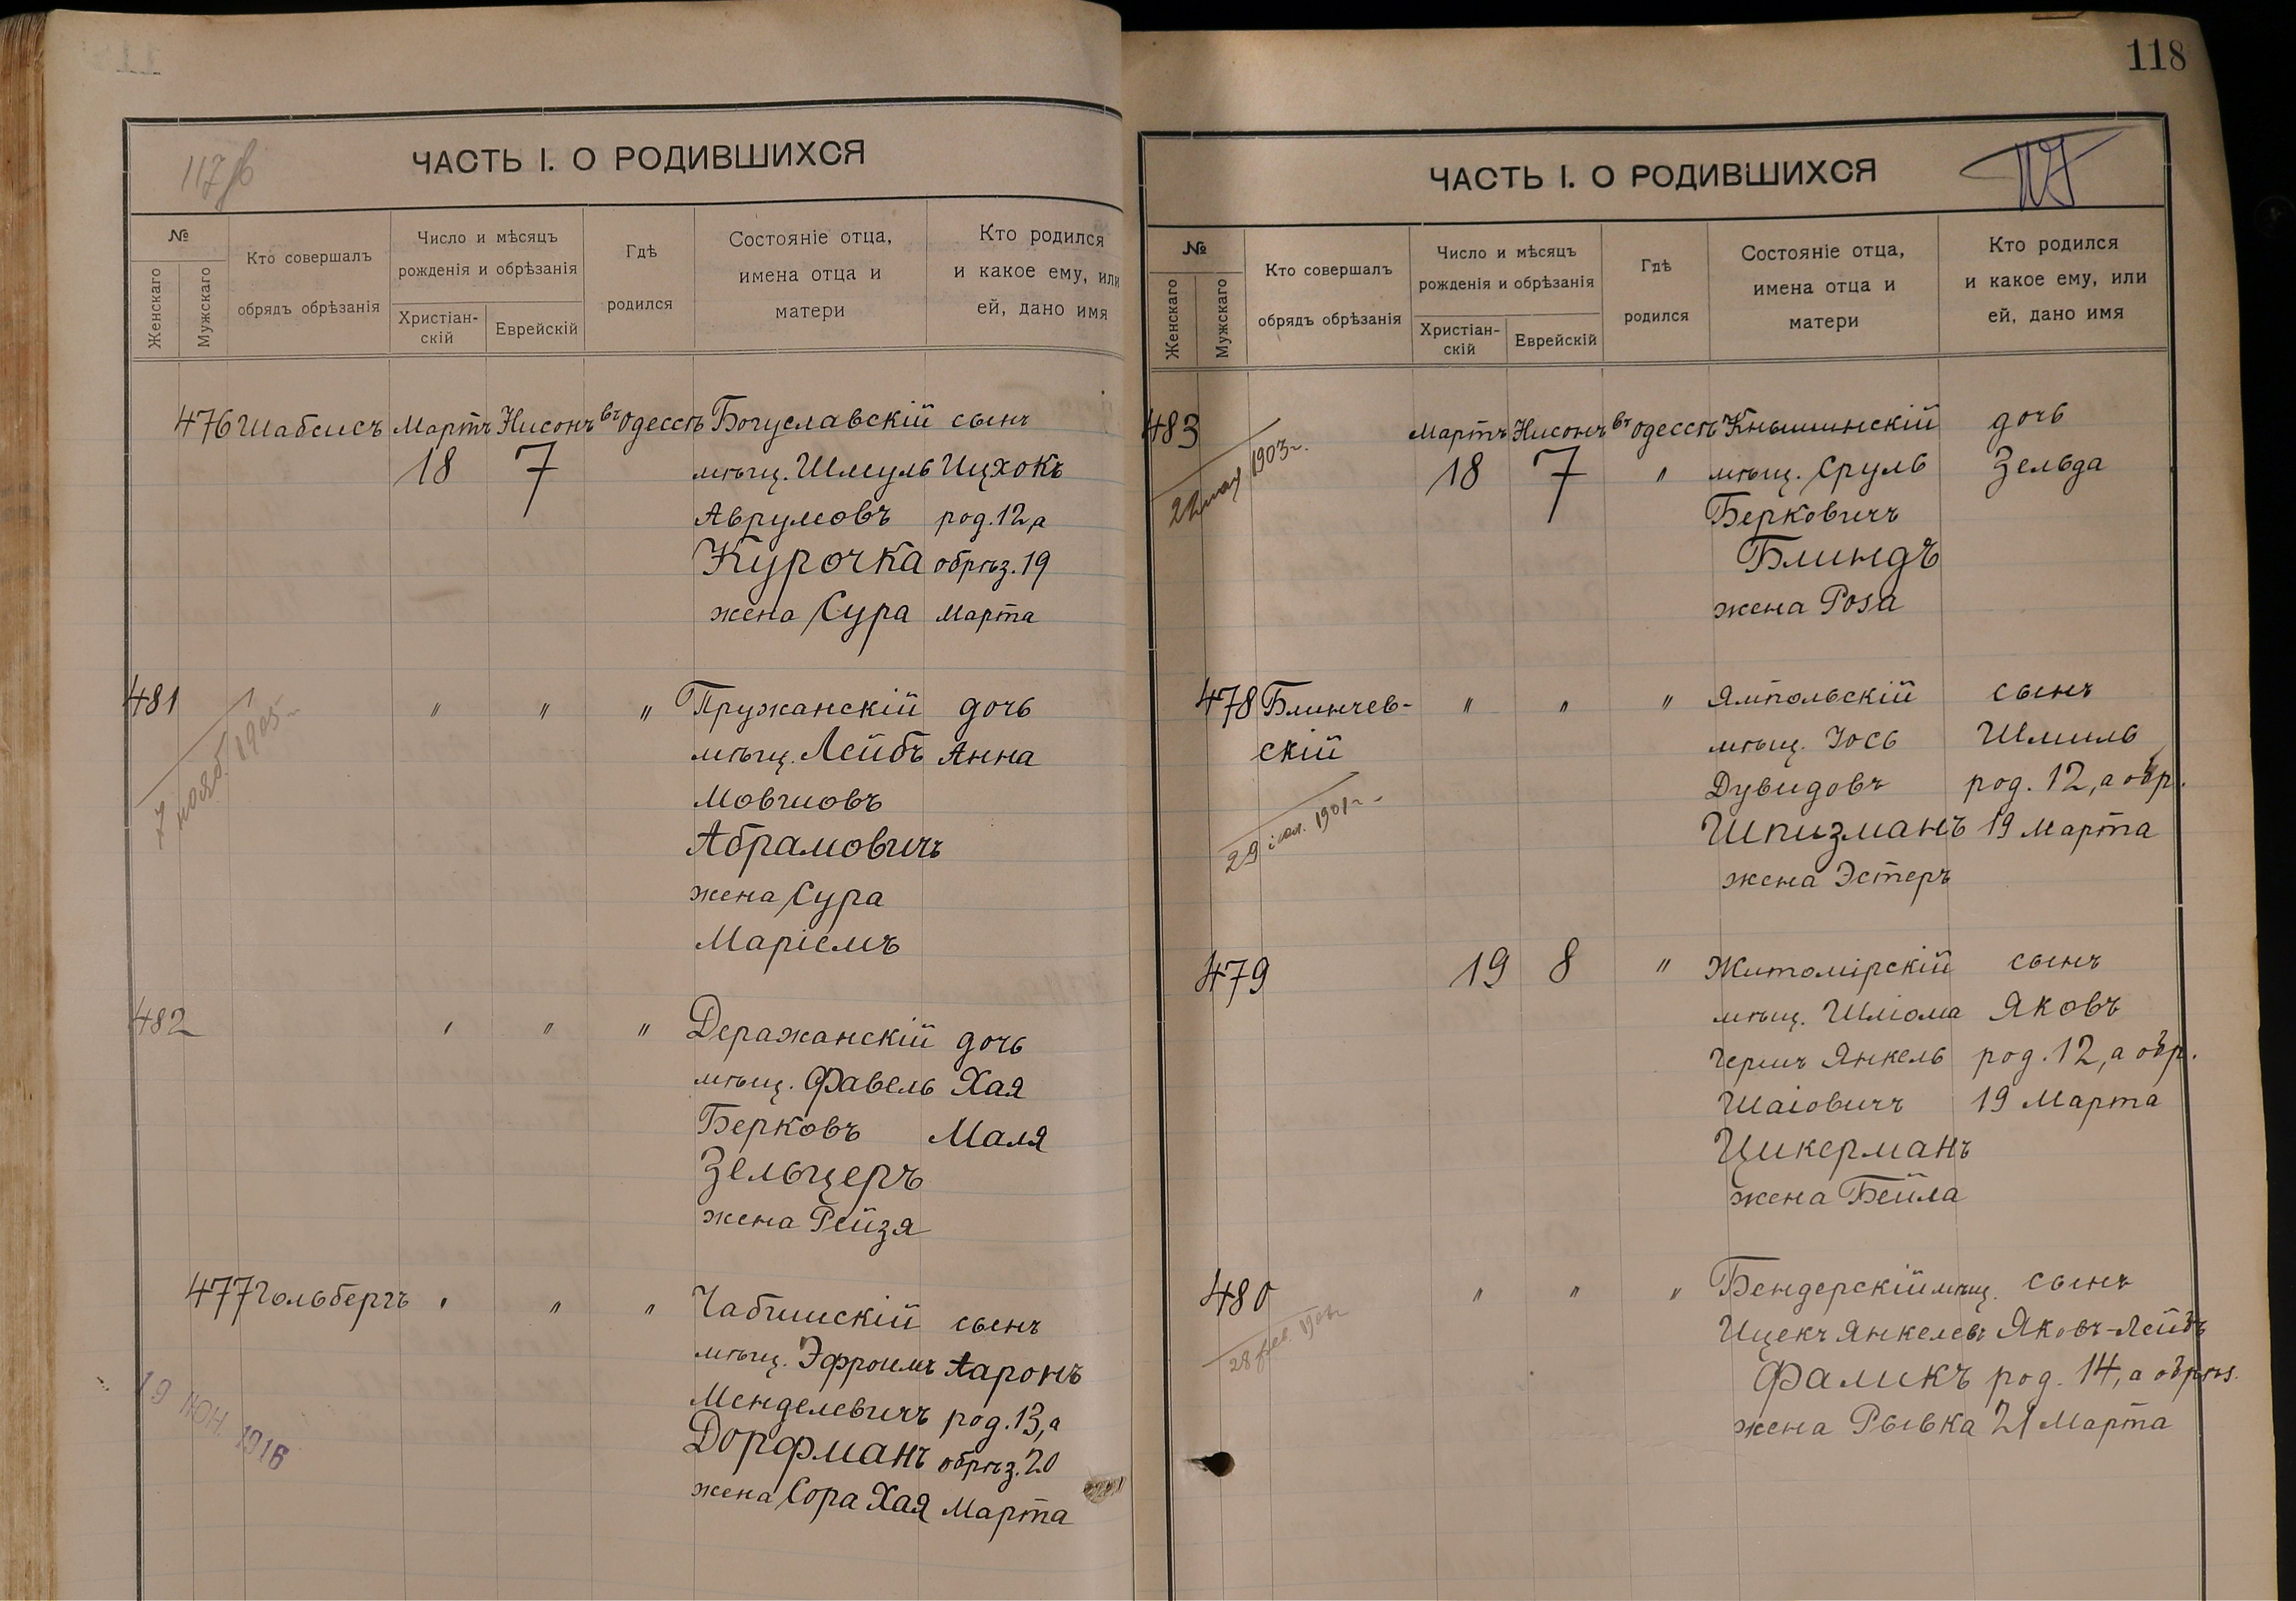 117об
ЧАСТЬ I. О РОДИВШИХСЯ
№
Женскаго
Мужскаго
Кто совершалъ
обрядъ обрѣзанія
Число и мѣсяцъ
рожденія и обрѣзанія
Христіан-
скій
Еврейскій
Гдѣ
родился
Состояніе отца,
имена отца и
матери
Кто родился
и какое ему, или
ей, дано имя
476 Шабсисъ Мартъ Нисонъ въ Одессѣ Богуславскій сынъ
18 7 мѣщ. Шмуль Ицхокъ
Аврумовъ род. 12, а
Курочка обрѣз. 19
жена Сура Марта
481 " " " Пружанскій дочь
мѣщ. Лейбъ Анна
Мовшовъ
7 нояб. 1905
Абрамовичъ
жена Сура
Маріемъ
482 " " " Деражанскій дочь
мѣщ. Фавель Хая
Берковъ Маля
Зельцеръ
жена Рейзя
477 Гольбергъ " " " Чабишскій сынъ
мѣщ. Эфроимъ Ааронъ
Менделевичъ род. 13, а
19 ІЮН. 1916
Дорфманъ обрѣз. 20
жена Сора Хая Марта
118
ЧАСТЬ I. О РОДИВШИХСЯ
№
Женскаго
Мужскаго
Кто совершалъ
обрядъ обрѣзанія
Число и мѣсяцъ
рожденія и обрѣзанія
Христіан-
скій
Еврейскій
Гдѣ
родился
Состояніе отца,
имена отца и
матери
Кто родился
и какое ему, или
ей, дано имя
483 Мартъ Нисонъ въ Одессѣ Кнышинскій дочь
22 мая 1903 г.
18 7 " мѣщ. Сруль Зельда
Берковичъ
Блиндъ
жена Роза
478 Блинчев- " " " Ямпольскій сынъ
скій мѣщ. Іось Шмиль
Дувидовъ род. 12, а обр.
29 1901 г.
Шпизманъ 19 Марта
жена Эстеръ
479 19 8 " Житомірскій сынъ
мѣщ. Шліома Яковъ
Гершъ Янкель род. 12, а обр.
Шаіовичъ 19 Марта
Цикерманъ
жена Бейла
480 " " " Бендерскій мѣщ. сынъ
Ицекъ Янкелевъ Яковъ-Лейбъ
28
Фаликъ род. 14, а обрѣз.
жена Рывка 21 Марта